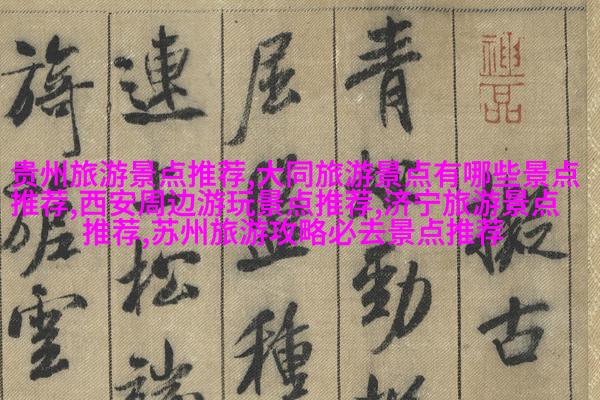 贵州旅游景点推荐,大同旅游景点有哪些景点
推荐,西安周边游玩景点推荐,济宁旅游景点
推荐,苏州旅游攻略必去景点推荐
神品
擬古
青松勁挺
屈盤種
連上松端
旖旎雲